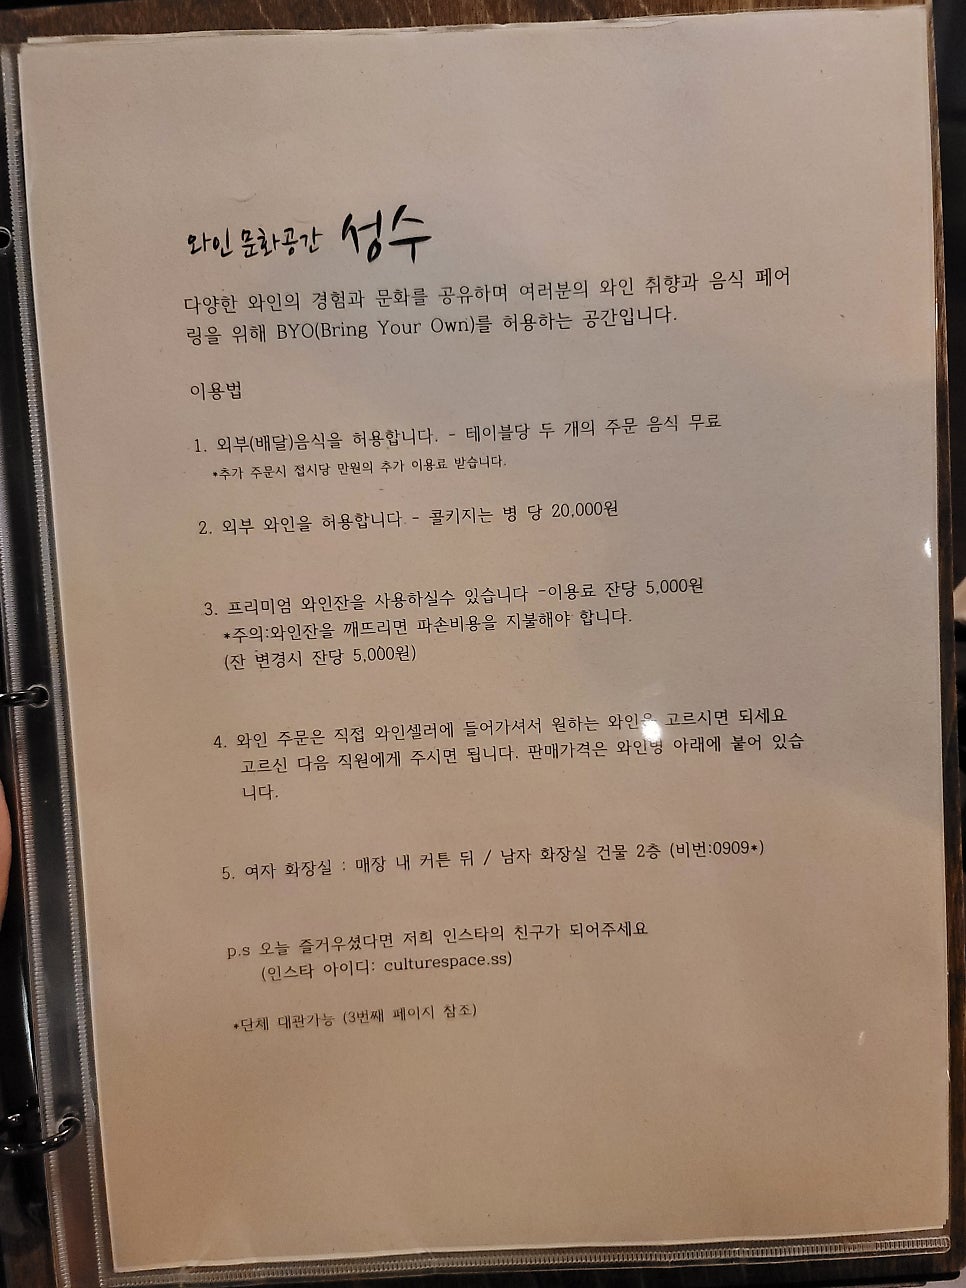 와인 문화공간 성수
다양한 와인의 경험과 문화를 공유하며 여러분의 와인 취향과 음식 페어
링을 위해 BYO(Bring Your Own)를 허용하는 공간입니다.
이용법
1. 외부(배달)음식을 허용합니다. - 테이블당 두 개의 주문 음식 무료
*추가 주문시 접시당 만원의 추가 이용료 받습니다.
2. 외부 와인을 허용합니다 - 콜키지는 병 당 20,000원
3. 프리미엄 와인잔을 사용하실수 있습니다 -이용료 잔당 5,000원
*주의:와인잔을 깨뜨리면 파손비용을 지불해야 합니다.
(잔 변경시 잔당 5,000원)
4. 와인 주문은 직접 와인셀러에 들어가셔서 원하는 와인을 고르시면 되세요
고르신 다음 직원에게 주시면 됩니다. 판매가격은 와인병 아래에 붙어 있습
니다.
5. 여자 화장실 : 매장 내 커튼 뒤 / 남자 화장실 건물 2층 (비번:0909*)
p.s 오늘 즐거우셨다면 저희 인스타의 친구가 되어주세요
(인스타 아이디: culturespace.ss)
*단체 대관가능 (3번째 페이지 참조)